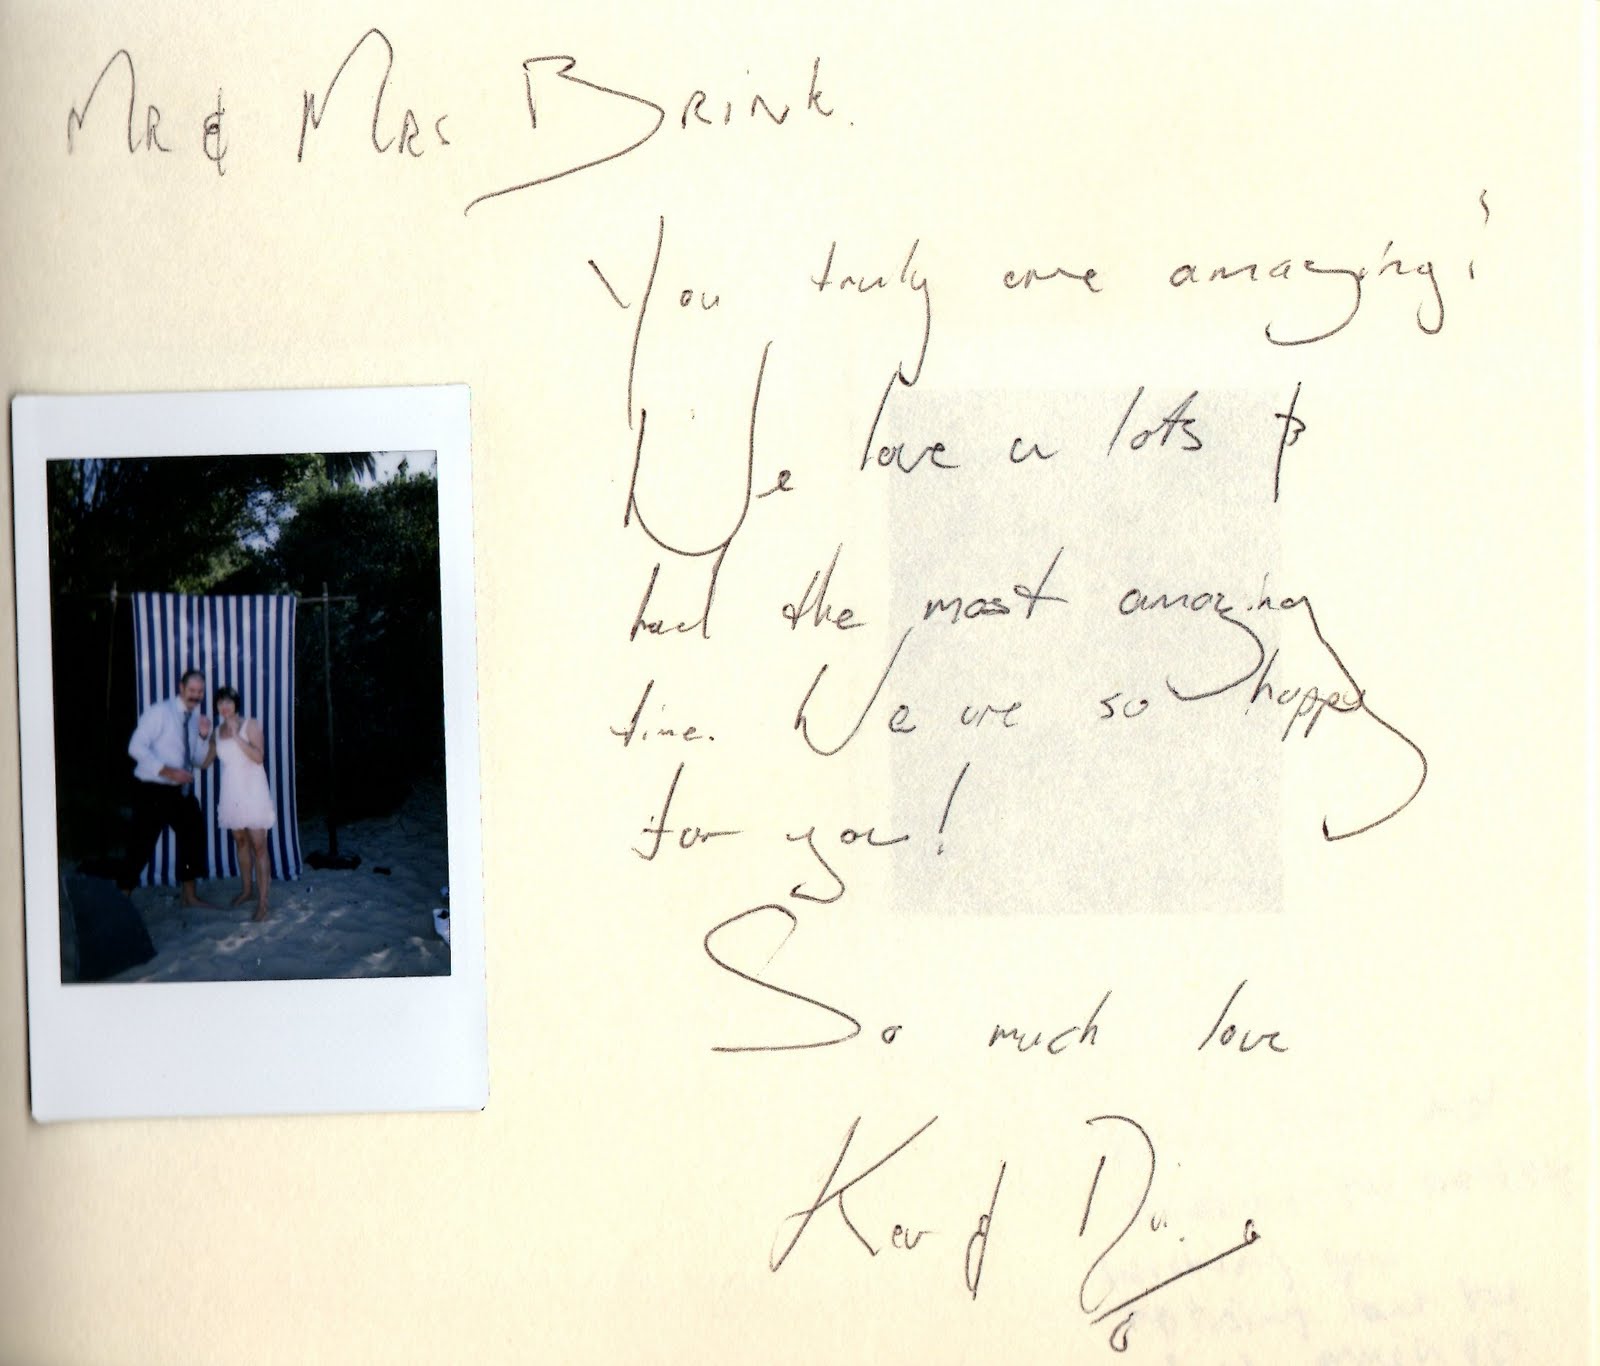 Mr & Mrs Brink.
You truly are amazing!
We love u lots &
had the most amazing
time. We are so happy
for you!
So much love
Kev &